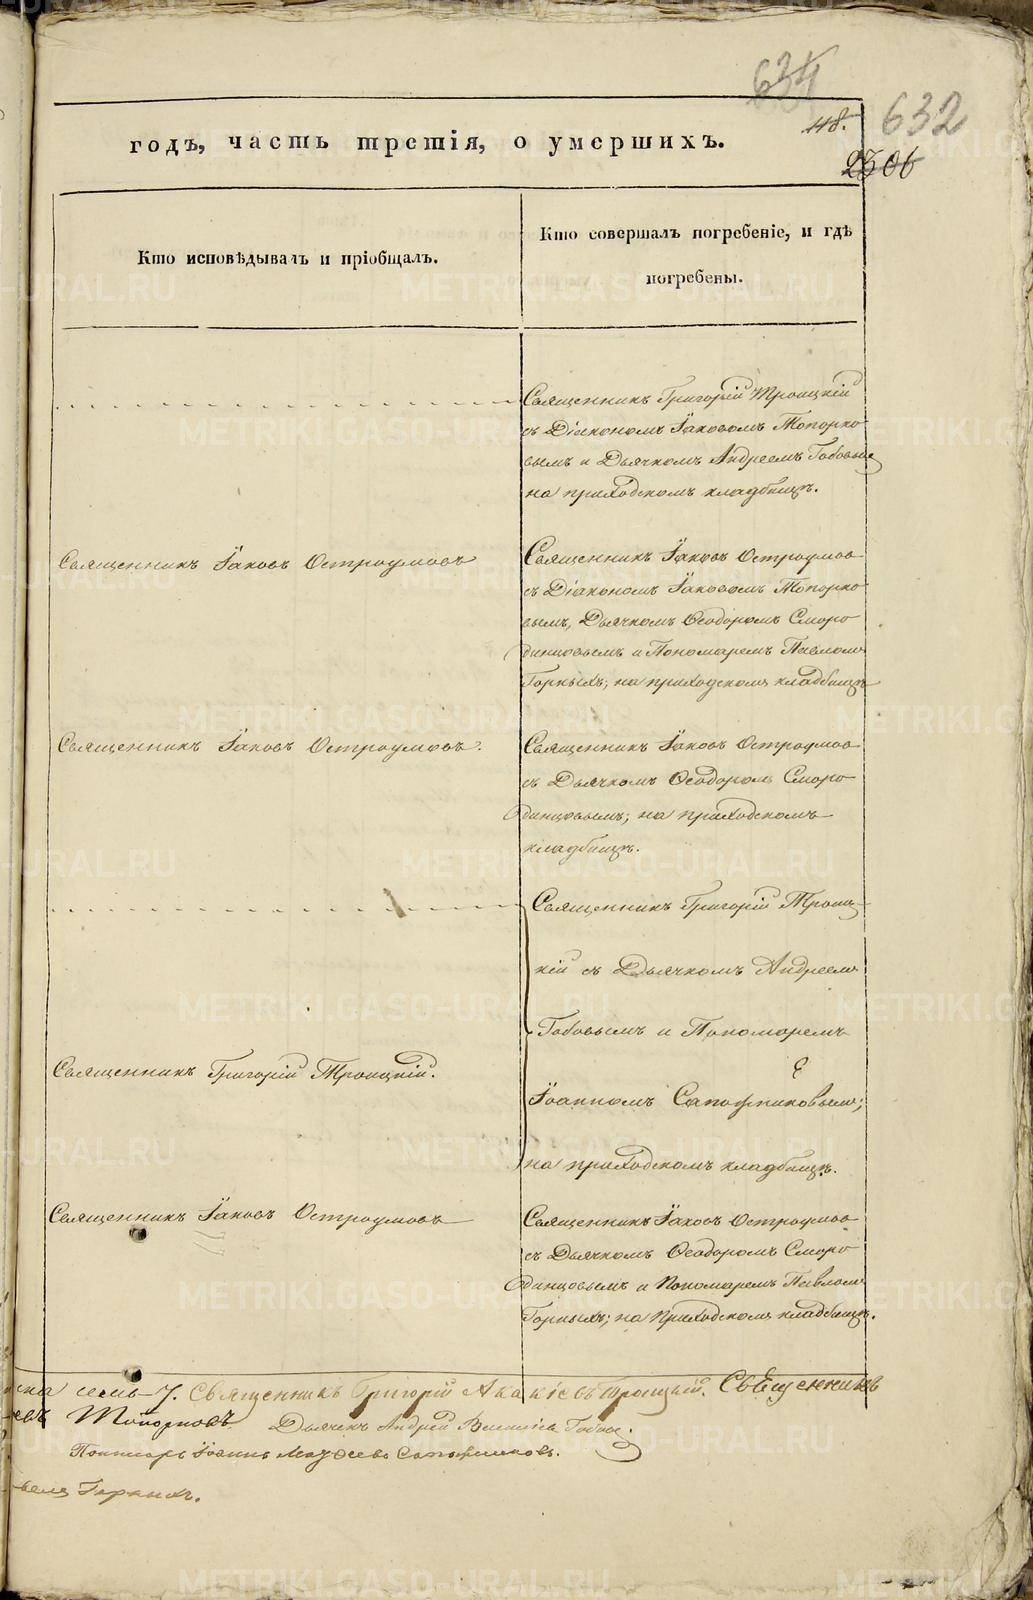 634
632
118.
2306
годъ, часть третія, о умершихъ.
Кто исповѣдывалъ и пріобщалъ.
Кто совершалъ погребеніе, и гдѣ
погребены.
Священникъ Григорій Троицкій
съ Діакономъ Іаковомъ Топорко
вымъ и Дьячкомъ Андреемъ Гобовым
на приходскомъ кладбищѣ.
Священникъ Іаковъ Остроумовъ
Священникъ Іаковъ Остроумов
съ Діакономъ Іаковомъ Топорко
вымъ, Дьячкомъ Ѳеодоромъ Сморо
динцовымъ и Пономаремъ Павломъ
Горныхъ; на приходскомъ кладбищѣ
Священникъ Іаковъ Остроумовъ.
Священникъ Іаковъ Остроумов
съ Дьячкомъ Ѳеодоромъ Сморо
динцовымъ; на приходскомъ
кладбищѣ.
Священникъ Григорій Троиц-
кій съ Дьячкомъ Андреемъ
Гобовымъ и Пономаремъ
Священникъ Григорій Троицкій.
Іоанномъ Сапожниковымъ;
на приходскомъ кладбищѣ.
Священникъ Іаковъ Остроумовъ
Священникъ Іаковъ Остроумов
съ Дьячкомъ Ѳеодоромъ Сморо
динцовымъ и Пономаремъ Павломъ
Горныхъ; на приходскомъ кладбищѣ.
семь 7. Священникъ Григорій Акакіевъ Троицкій. Священникъ
евъ Топорковъ Дьячекъ Андрей Гобов.
Пономарь Іоаннъ Сапожников.
Горныхъ.
METRIKI.GASO-URAL.RU